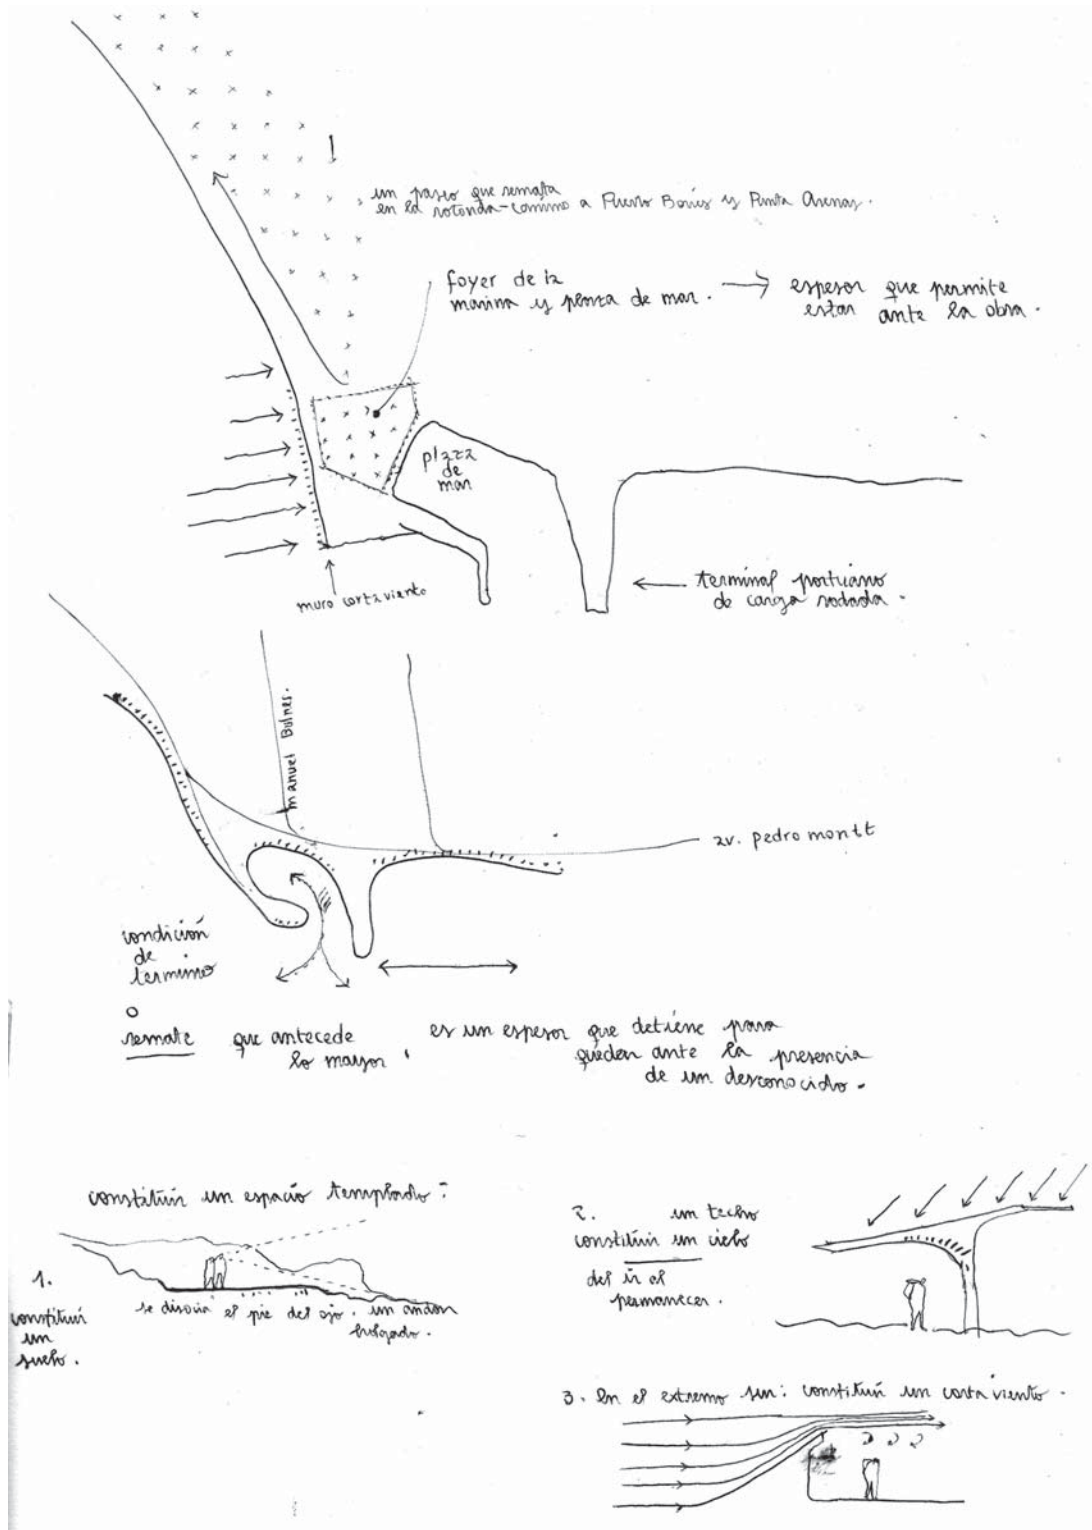 un paseo que remata
en la rotonda-camino a Puerto Bories y Punta Arenas.
foyer de la
marina y plaza de mar. → espesor que permite
estar ante la obra.
plaza
de
mar
terminal portuario
de carga rodada.
muro cortaviento
manuel Bulnes.
av. pedro montt
condición
de
termino
o
remate que antecede
lo mayor, es un espesor que detiene para
quedar ante la presencia
de un desconocido.
constituir un espacio templado:
1.
constituir
un
suelo.
se disocia el pie del ojo. un andar
holgado.
2. un techo
constituir un cielo
del ir al
permanecer.
3. En el extremo sur: constituir un corta viento.